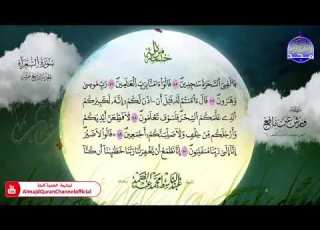 سورة الشعراء
فَأُلْقِيَ السَّحَرَةُ سَاجِدِينَ قَالُوا ءَامَنَّا بِرَبِّ الْعَالَمِينَ رَبِّ مُوسَىٰ
وَهَارُونَ قَالَ ءَامَنتُمْ لَهُ قَبْلَ أَنْ ءَاذَنَ لَكُمْ إِنَّهُ لَكَبِيرُكُمُ
الَّذِي عَلَّمَكُمُ السِّحْرَ فَلَسَوْفَ تَعْلَمُونَ لَأُقَطِّعَنَّ أَيْدِيَكُمْ
وَأَرْجُلَكُم مِّنْ خِلَافٍ وَلَأُصَلِّبَنَّكُمْ أَجْمَعِينَ قَالُوا لَا ضَيْرَ
إِنَّا إِلَىٰ رَبِّنَا مُنقَلِبُونَ إِنَّا نَطْمَعُ أَن يَغْفِرَ لَنَا رَبُّنَا خَطَايَانَا أَن كُنَّا
ورش عن نافع
AlmajdQuranChannelofficial